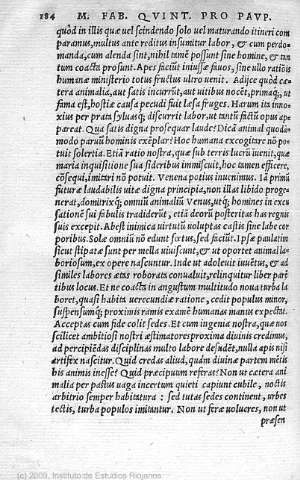 184 M. FAB. QVINT. PRO PAVP.
quòd in illis quæ uel scindendo solo uel maturando itineri com
paramus, multus ante reditus insumitur labor, & cum perdo-
manda, cum alenda sint, nihil tamē possunt sine homine, & tan
tum coacta prosunt. Apes faciūt iniussæ suos, sine ullo ratiōis
humanæ ministerio totus fructus ultro uenit. Adijce quòd cæ-
tera animalia, aut satis incurrūt, aut uitibus nocēt, primaq; ut
fama est, hostia causa pecudi fuit læsa fruges. Harum ita inno-
xius per prata syluasq; discurrit labor, ut tantū fructū opus ap-
pareat. Qua satis digna prosequar laude? Dicā animal quodā-
modo parui hominis exēplar? Hoc humana excogitare nō po-
tuit solertia. Etiā ratio nostra, quæ sub terris lucrū inuenit, quæ
maria inquisitione sua sideribus immiscuit, hoc tamen efficere,
cōsequi, imitari nō potuit. Venena potius inuenimus. Iā primū
futuræ laudabilis uitæ digna principia, non illas libido proge-
nerat, domitrixq; omniū animaliū Venus, utq; homines in excu
sationē sui fabulis tradiderūt, etiā deorū posteritas has regnis
suis excepit. Abest inimica uirtuti uoluptas castis sine labe cor
poribus. Solæ omniū nō edunt fœtus, sed faciūt. Ipsæ paulatim
sicut stipatæ sunt per mella uiuiscunt, & ut oportet animal la-
boriosum, ex opere nascuntur. Inde ut adoleuit iuuētus, & ad
similes labores ætas roborata conualuit, relinquitur liber parē
tibus locus. Et ne coacta in angustum multitudo noua turba la
boret, quasi habita uerecundiæ ratione, cedit populus minor,
suspensumq; proximis ramis examē humanas manus expectat.
Acceptas cum fide colit sedes. Et cum ingenia nostra, quæ nos
scilicet ambitiosi nostri æstimatores proxima diuinis credimus,
ad percipiēdas disciplinas multo labore desudēt, nulla apis nisi
artifex nascitur. Quid credas aliud, quàm diuinæ partem mētis
bis animis inesse? Quid præcipuum referā? Non ut cætera ani
malia per pastus uaga incertum quieti capiunt cubile, noctis
arbitrio semper habitatura: sed tutas sedes continent, urbes
tectis, turba populos imitantur. Non ut feræ uolucres, non ut
præsen
(c) 2009, Instituto de Estudios Riojanos